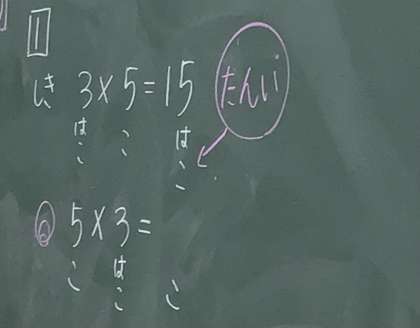 1
しき 3×5=15 たんい
はこ こ はこ
6 5×3=
こ はこ こ